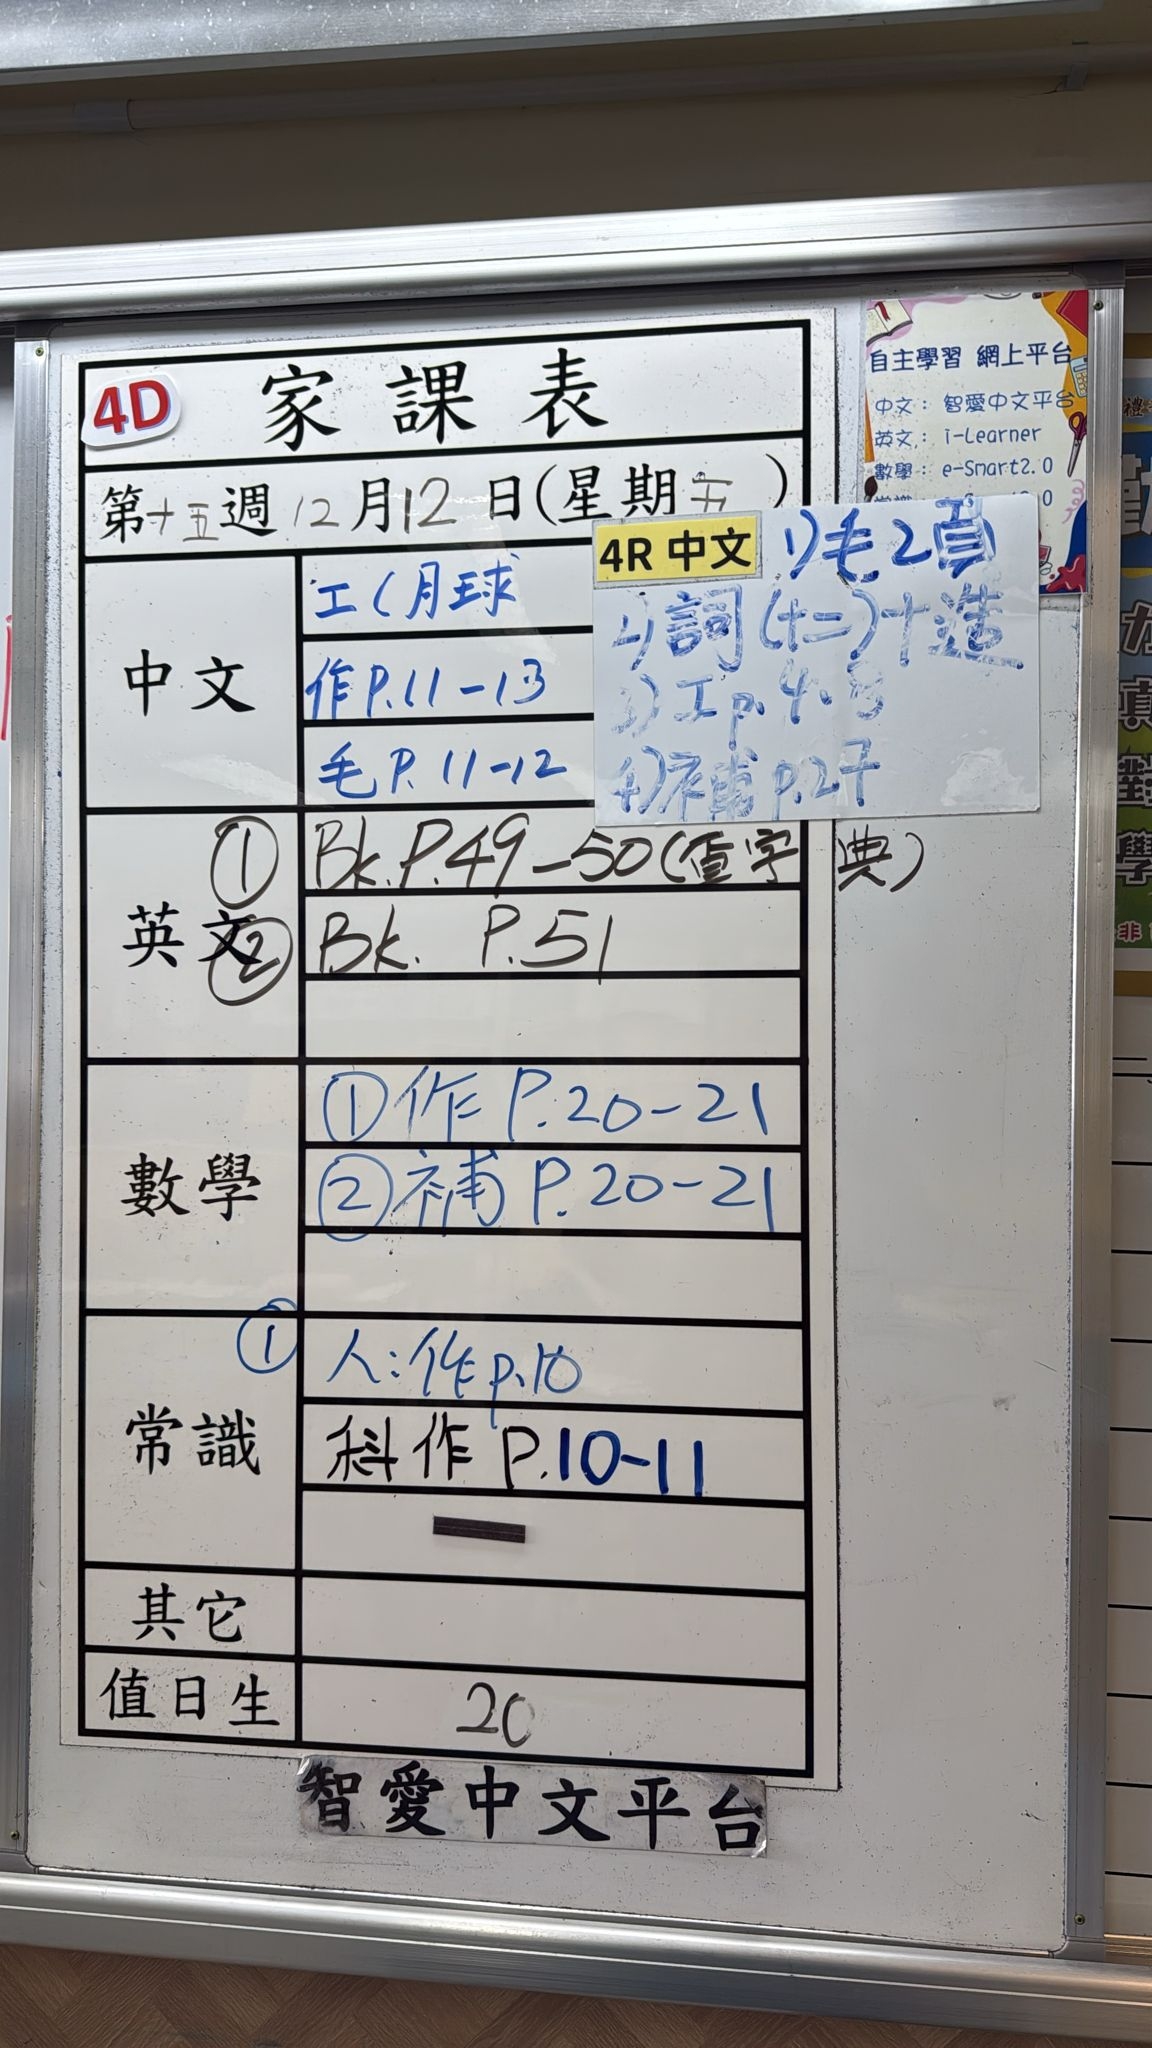 4D
家課表
第十五週12月12日(星期五)
中文
工(月球
作P.11-13
毛P.11-12
4R 中文
1)毛2頁
2)詞(十二)十造
3)工p.4.
4)補p.27
英文
① Bk.P.49-50(查字典)
② Bk. P.51
數學
①作 P.20-21
②補 P.20-21
常識
① 人:作p.10
科作 P.10-11
其它
值日生
20
智愛中文平台
自主學習 網上平台
中文: 智愛中文平台
英文: i-Learner
數學: e-Smart2.0